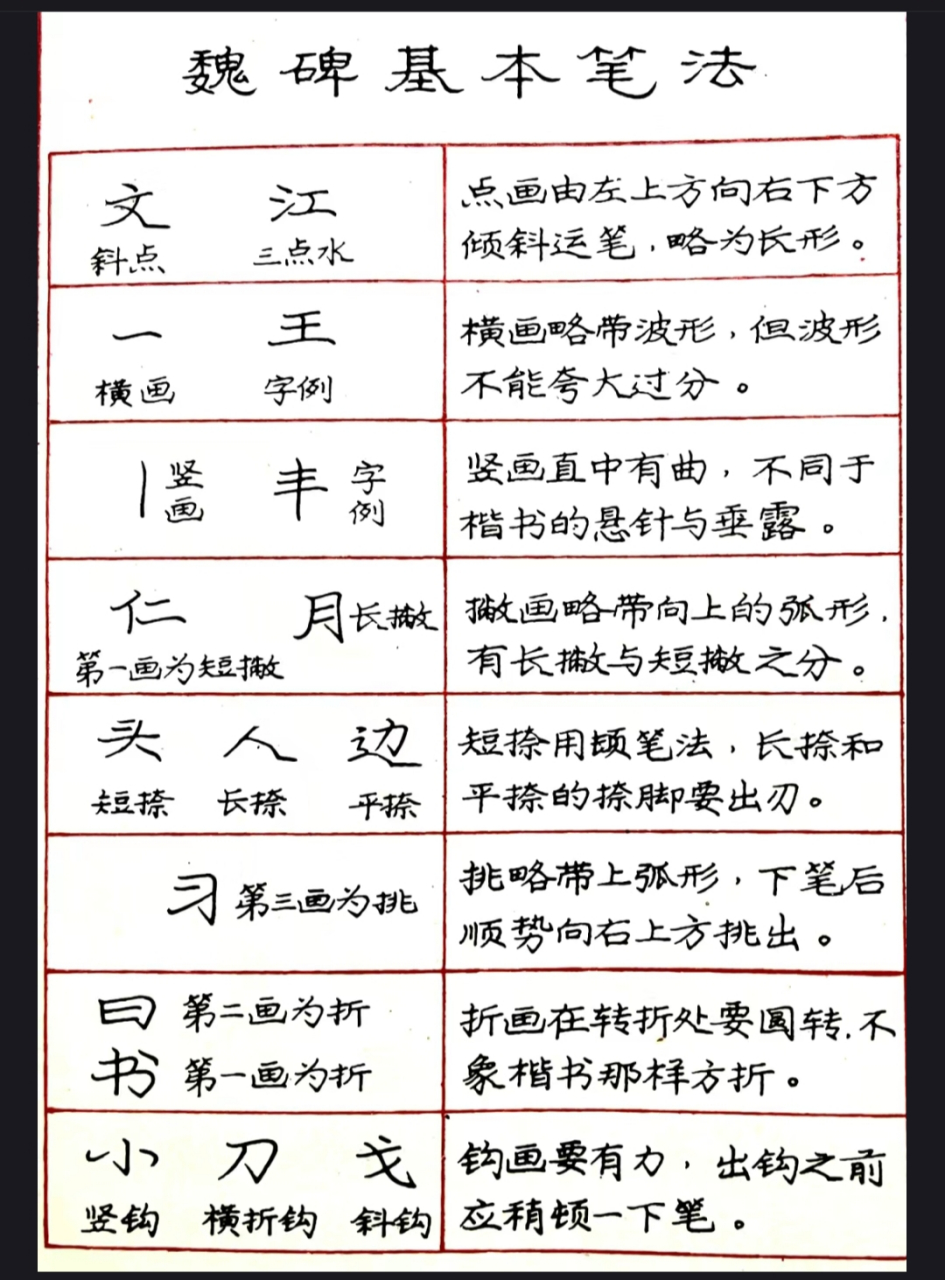 魏碑基本笔法
文 江
斜点 三点水
点画由左上方向右下方
倾斜运笔，略为长形。
一 王
横画 字例
横画略带波形，但波形
不能夸大过分。
丨 竖画 丰 字例
竖画直中有曲，不同于
楷书的悬针与垂露。
仁 月 长撇
第一画为短撇
撇画略带向上的弧形，
有长撇与短撇之分。
头 人 边
短捺 长捺 平捺
短捺用顿笔法，长捺和
平捺的捺脚要出刃。
习 第三画为挑
挑略带上弧形，下笔后
顺势向右上方挑出。
曰 第二画为折
书 第一画为折
折画在转折处要圆转，不
象楷书那样方折。
小 刀 戈
竖钩 横折钩 斜钩
钩画要有力，出钩之前
应稍顿一下笔。